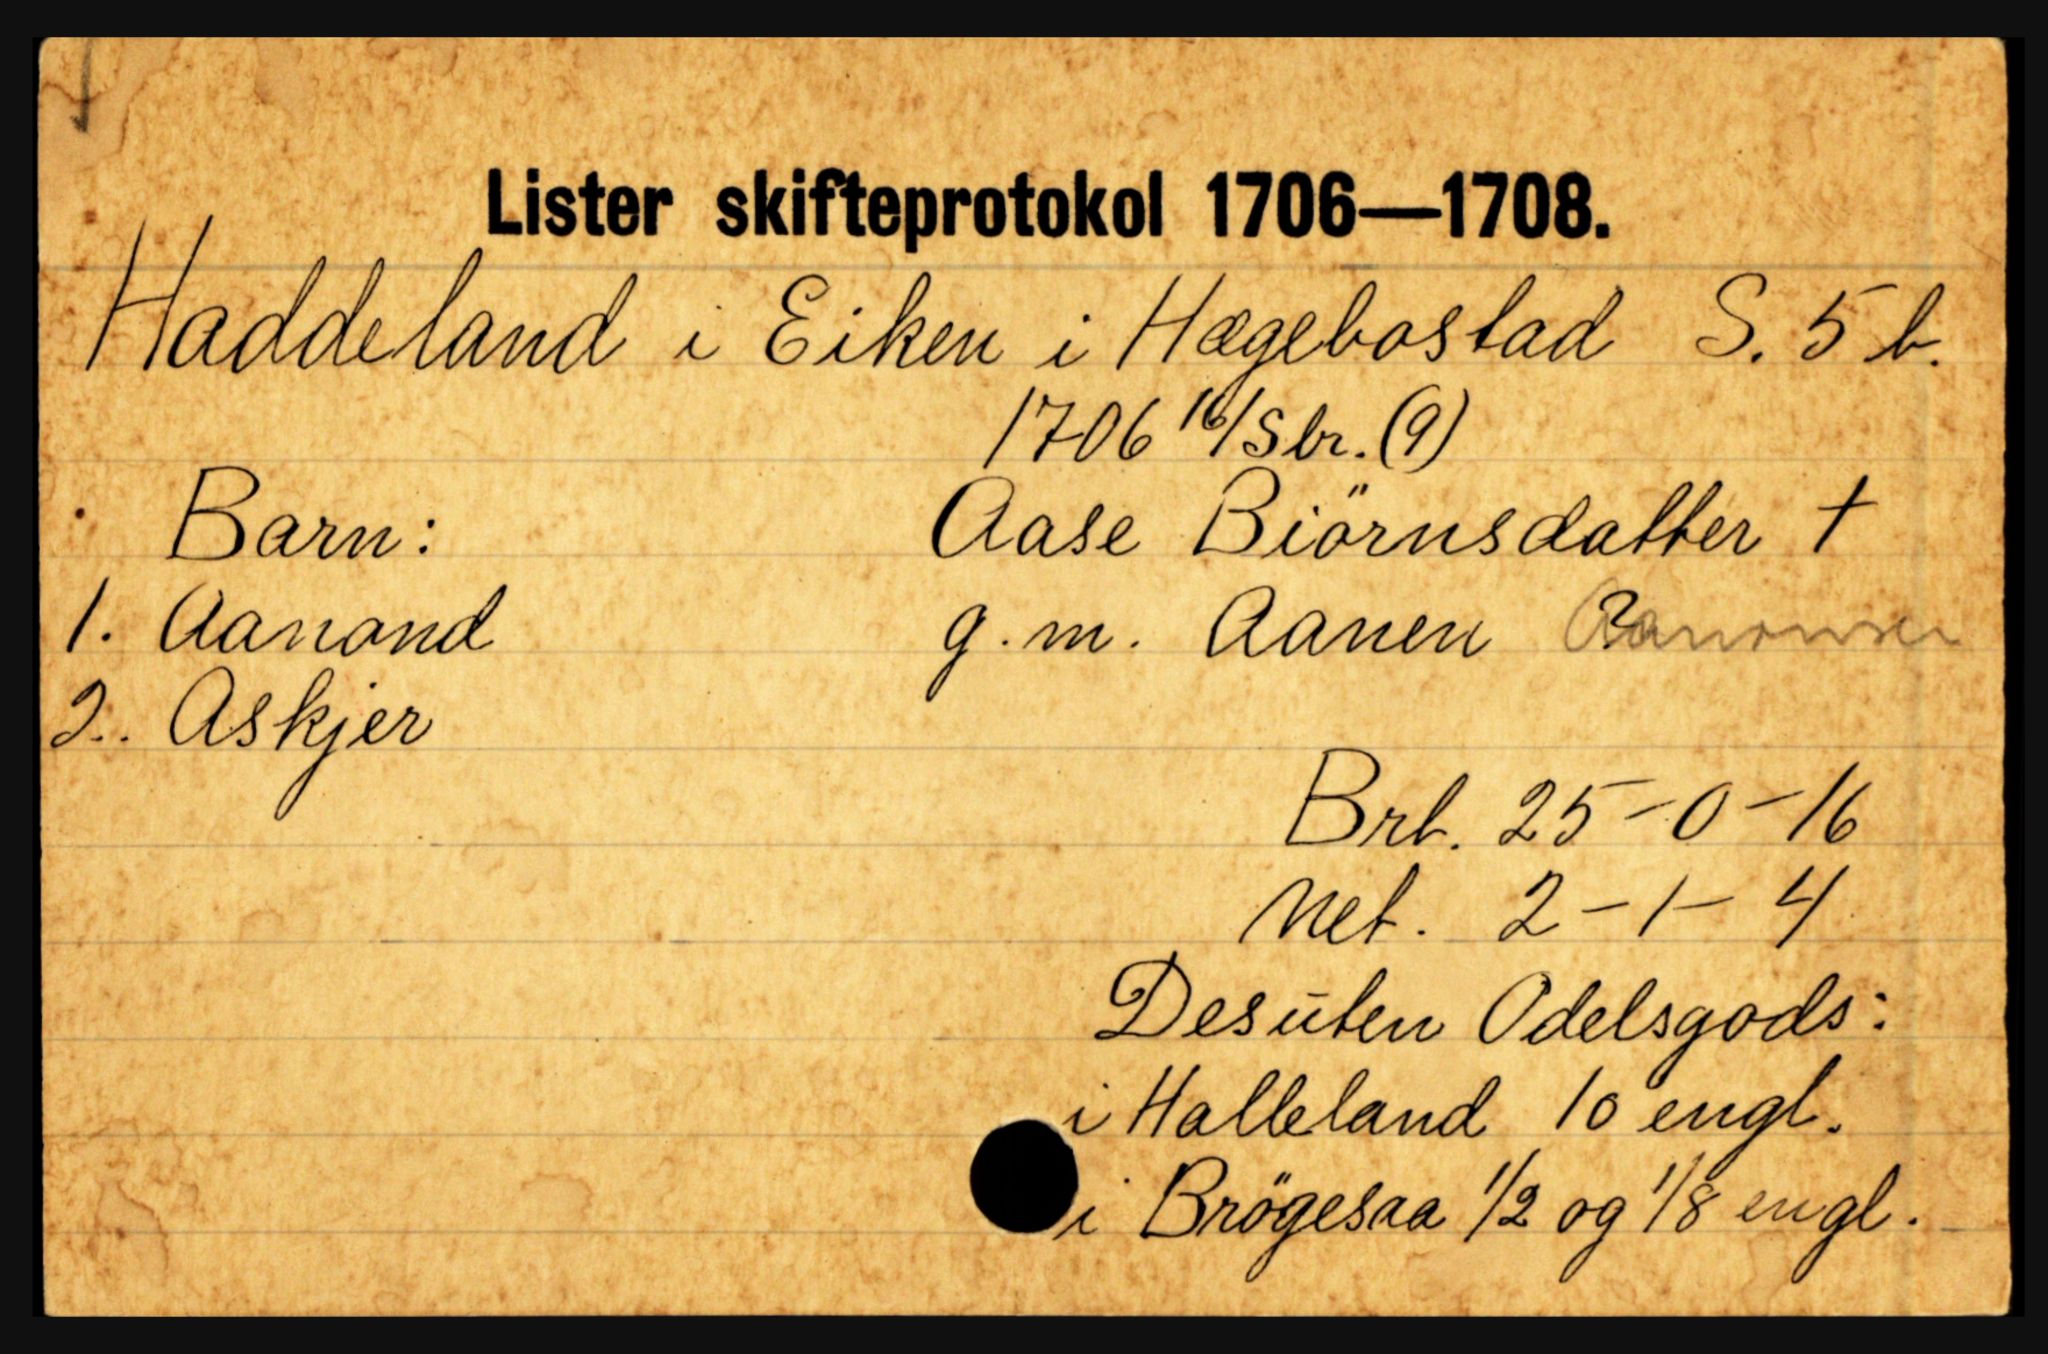 Lister skifteprotokol 1706—1708.
Haddeland i Eiken i Hægebostad S. 5 b.
1706 16/Sbr. (9)
Barn: Aase Biörnsdatter †
1. Aanond g. m. Aanen
2. Askjer
Brt. 25-0-16
Net. 2-1-4
Desuten Odelsgods:
i Halleland 10 engl.
i Brögesaa 1/2 og 1/8 engl.